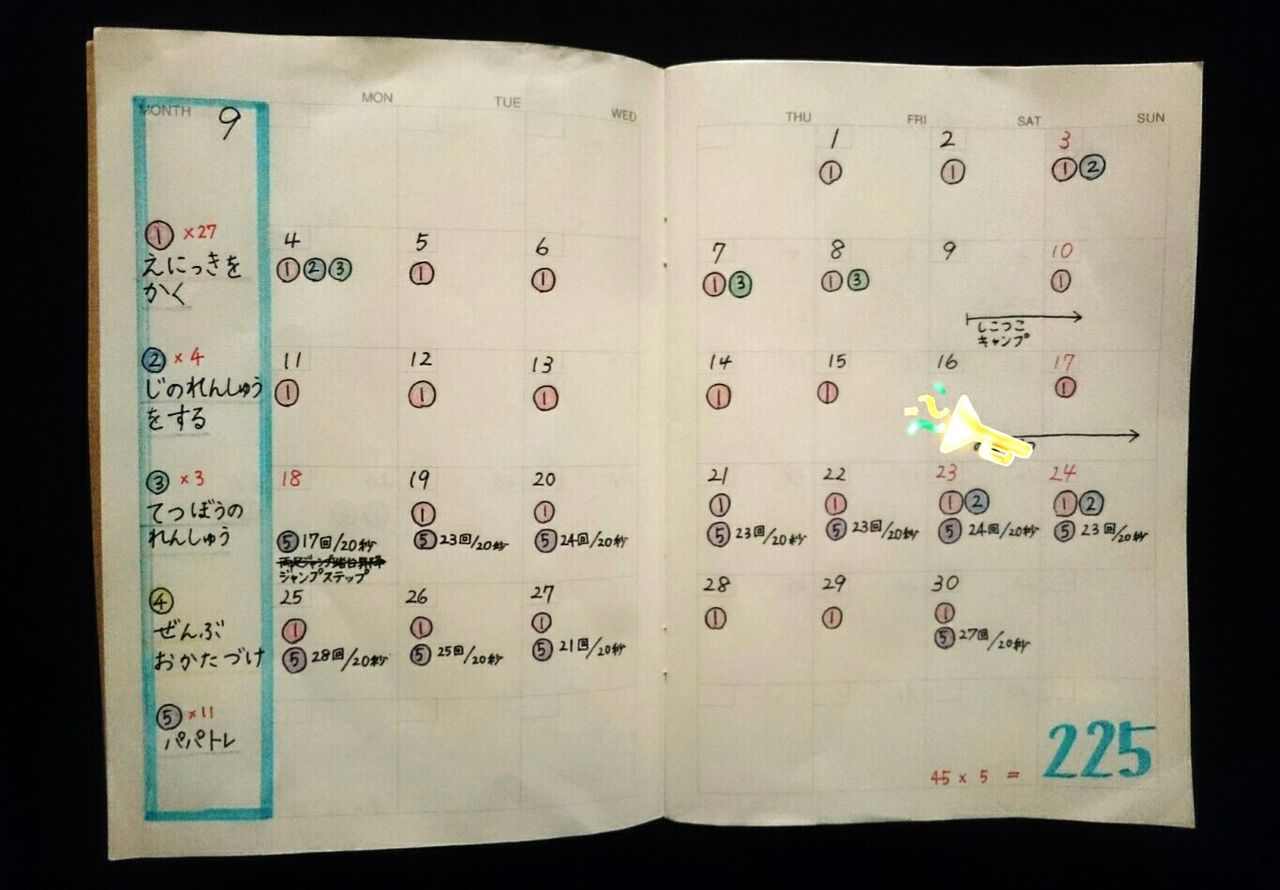 MONTH 9
MON TUE WED THU FRI SAT SUN
1 2 3
① ① ①②
① ×27
えにっきを
かく
4 5 6 7 8 9 10
①②③ ① ① ①③ ①③ ①
しこつこ
キャンプ
② ×4
じのれんしゅう
をする
11 12 13 14 15 16 17
① ① ① ① ① ①
③ ×3
てつぼうの
れんしゅう
18 19 20 21 22 23 24
① ① ① ① ①② ①②
⑤17回/20秒 ⑤23回/20秒 ⑤24回/20秒 ⑤23回/20秒 ⑤23回/20秒 ⑤24回/20秒 ⑤23回/20秒
ジャンプステップ
④
ぜんぶ
おかたづけ
25 26 27 28 29 30
① ① ① ① ① ①
⑤28回/20秒 ⑤25回/20秒 ⑤21回/20秒 ⑤27回/20秒
⑤ ×11
パパトレ
45 × 5 = 225